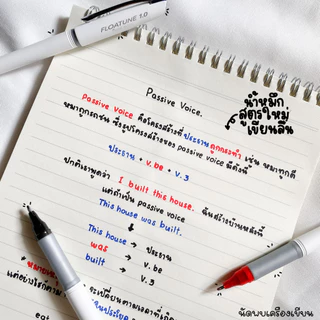 FLOATUNE 1.0
น้ำหมึก
สูตรใหม่
เขียนลื่น
Passive Voice.
Passive voice คือโครงสร้างที่ประธานถูกกระทำ เช่น หมาถูกตี
หมาถูกรถชน ซึ่งรูปโครงสร้างของ passive voice มีดังนี้
ประธาน + v.be + v.3
ปกติเราพูดว่า I built this house. ฉันสร้างบ้านหลังนี้
แต่ถ้าเป็น passive voice
This house was built.
This house → ประธาน
was → v. be
built → v. 3
จะเปลี่ยนตามเวลาที่เกิด
แต่อย่างไรก็ตาม
eat
นัดพบเครื่องเขียน